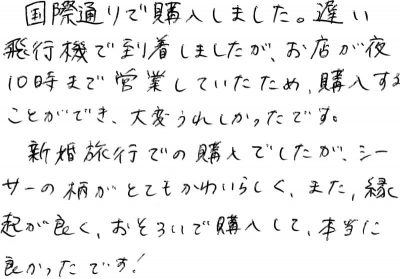 国際通りで購入しました。遅い
飛行機で到着しましたが、お店が夜
10時まで営業していたため、購入する
ことができ、大変うれしかったです。
新婚旅行での購入でしたが、シー
サーの柄がとてもかわいらしく、また、縁
起が良く、おそろいで購入して、本当に
良かったです!